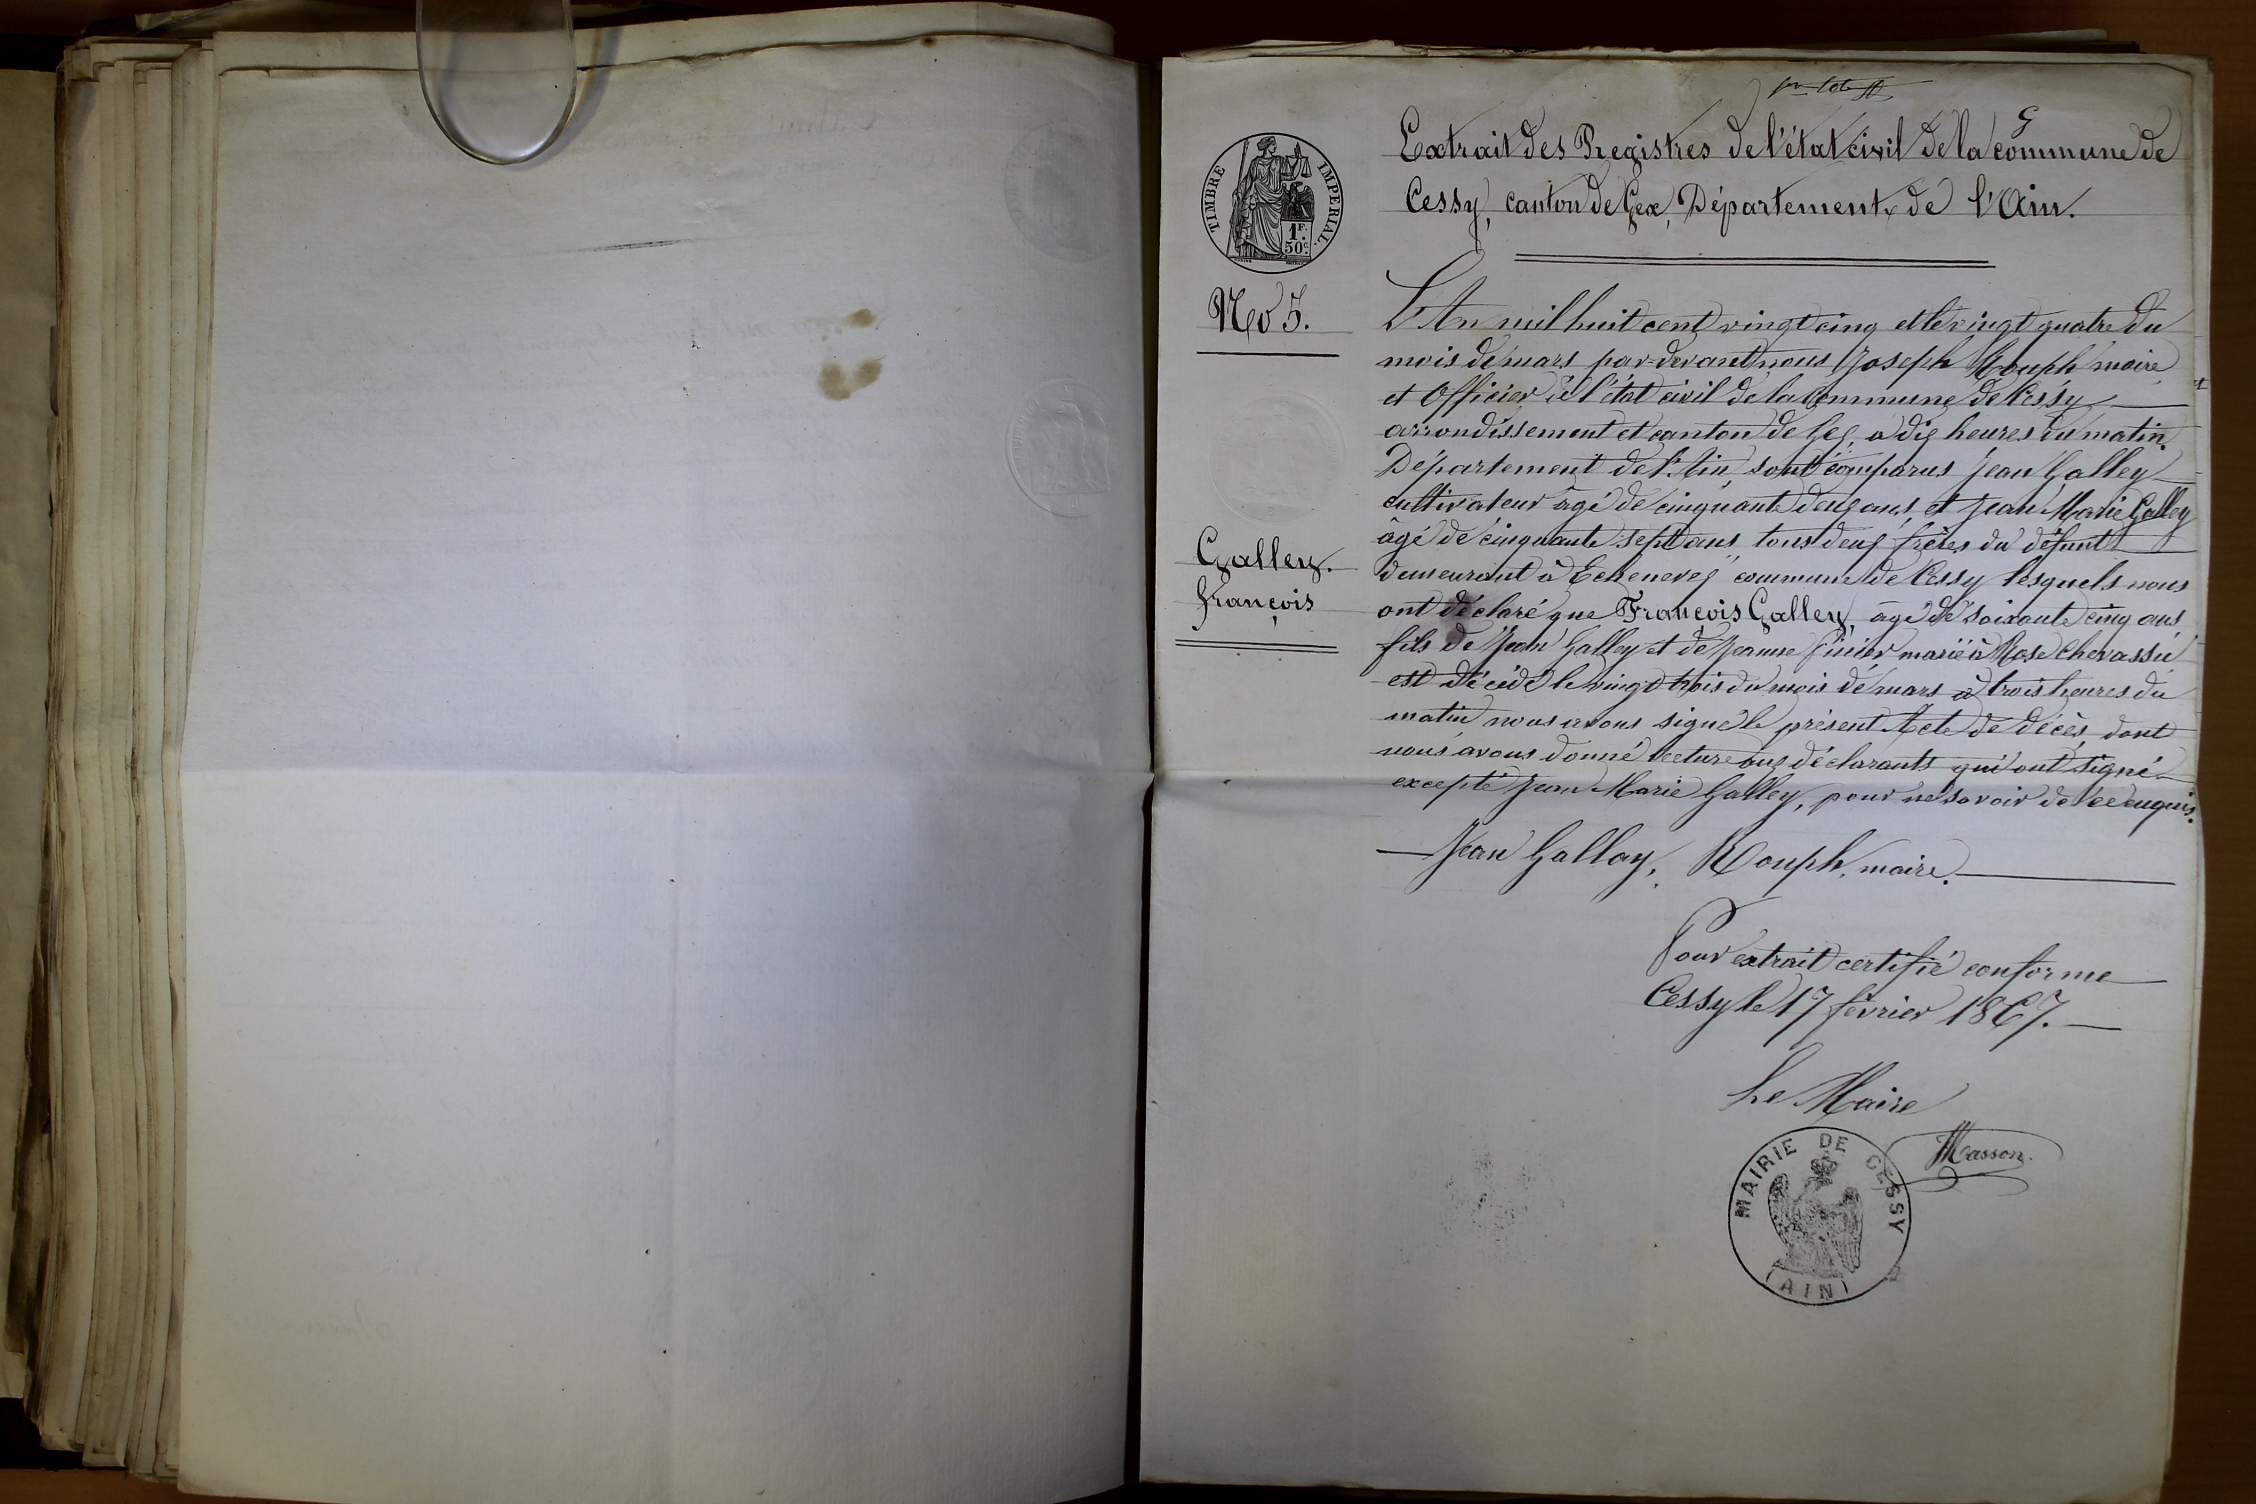 G
Extrait des Registres de l'état civil de la commune de
Cessy, canton de Gex, Département de l'Ain.
TIMBRE IMPERIAL.
1F.
50c.
No 5.
L'An mil huit cent vingt cinq et le vingt quatre du
mois de mars par-devant nous Joseph Rouph maire
et Officier de l'état civil de la Commune de Cessy
arrondissement et canton de Gex, à dix heures du matin.
Département de l'Ain, sont comparus Jean Galley
cultivateur âgé de cinquante deux ans, et Jean Marie Galley
âgé de cinquante sept ans, tous deux frères du défunt
demeurant à Echenevex commune de Cessy lesquels nous
ont déclaré que François Galley, âgé de soixante cinq ans,
fils de Jean Galley et de Jeanne marié à Rose Chevassu
est décédé le vingt trois du mois de mars à trois heures du
matin nous avons signé le présent Acte de décès, dont
nous avons donné lecture aux déclarants qui ont signé
excepté Jean Marie Galley, pour ne savoir de ce enquis.
Jean Gallay, Rouph, maire.
Galley.
françois
Pour extrait certifié conforme
Cessy le 17 février 1867.
Le Maire
Masson.
MAIRIE DE CESSY
(AIN)